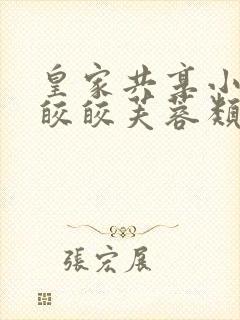 皇家共享小
皎皎芙蓉類
張宏展